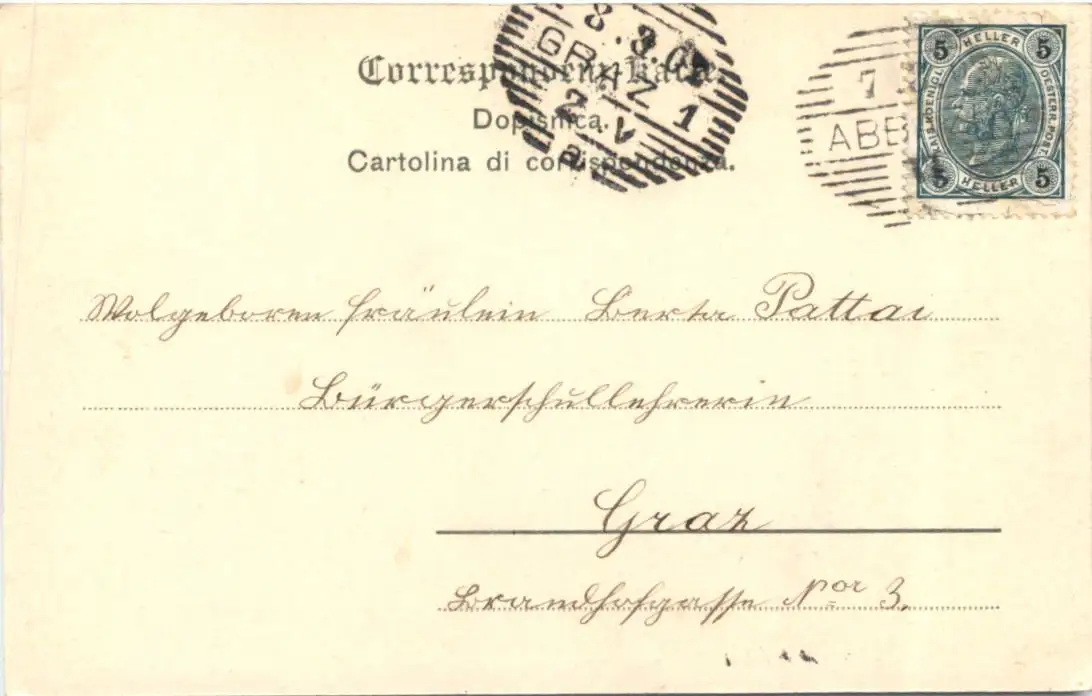 Correspondenz-Karte.
Dopisnica.
Cartolina di corrispondenza.
8.3.0
GRAZ 1
2 V
a
7
ABB
5 HELLER 5
KAIS. KOENIGL. OESTERR. POST.
5 HELLER 5
Wolgeboren Fräulein Berta Pattai
Bürgerschullehrerin
Graz
Brandhofgasse Nor 3.